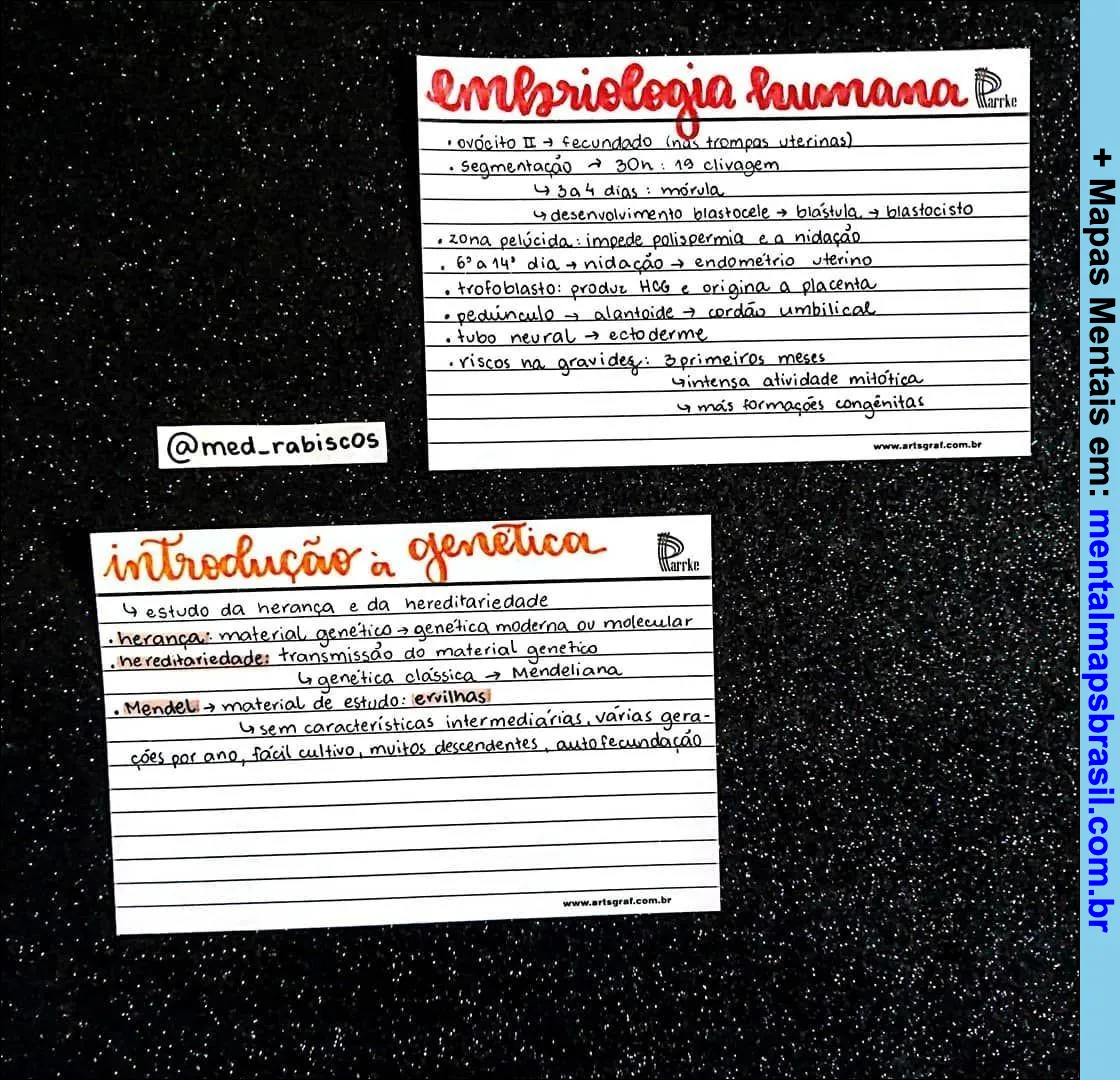 embriologia humana
Parrke
• ovócito II → fecundado (nas trompas uterinas)
• segmentação → 30h : 1ª clivagem
↳ 3 a 4 dias : mórula
↳ desenvolvimento blastocele → blástula → blastocisto
• zona pelúcida : impede polispermia e a nidação
• 6º a 14º dia → nidação → endométrio uterino
• trofoblasto: produz HCG e origina a placenta
• pedúnculo → alantoide → cordão umbilical
• tubo neural → ectoderme
• riscos na gravidez : 3 primeiros meses
↳ intensa atividade mitótica
↳ más formações congênitas
www.artsgraf.com.br
@med_rabiscos
introdução à genética
Parrke
↳ estudo da herança e da hereditariedade
• herança: material genético → genética moderna ou molecular
• hereditariedade: transmissão do material genético
↳ genética clássica → Mendeliana
• Mendel → material de estudo: ervilhas
↳ sem características intermediárias, várias gera-
ções por ano, fácil cultivo, muitos descendentes, autofecundação
www.artsgraf.com.br
+ Mapas Mentais em: mentalmapsbrasil.com.br